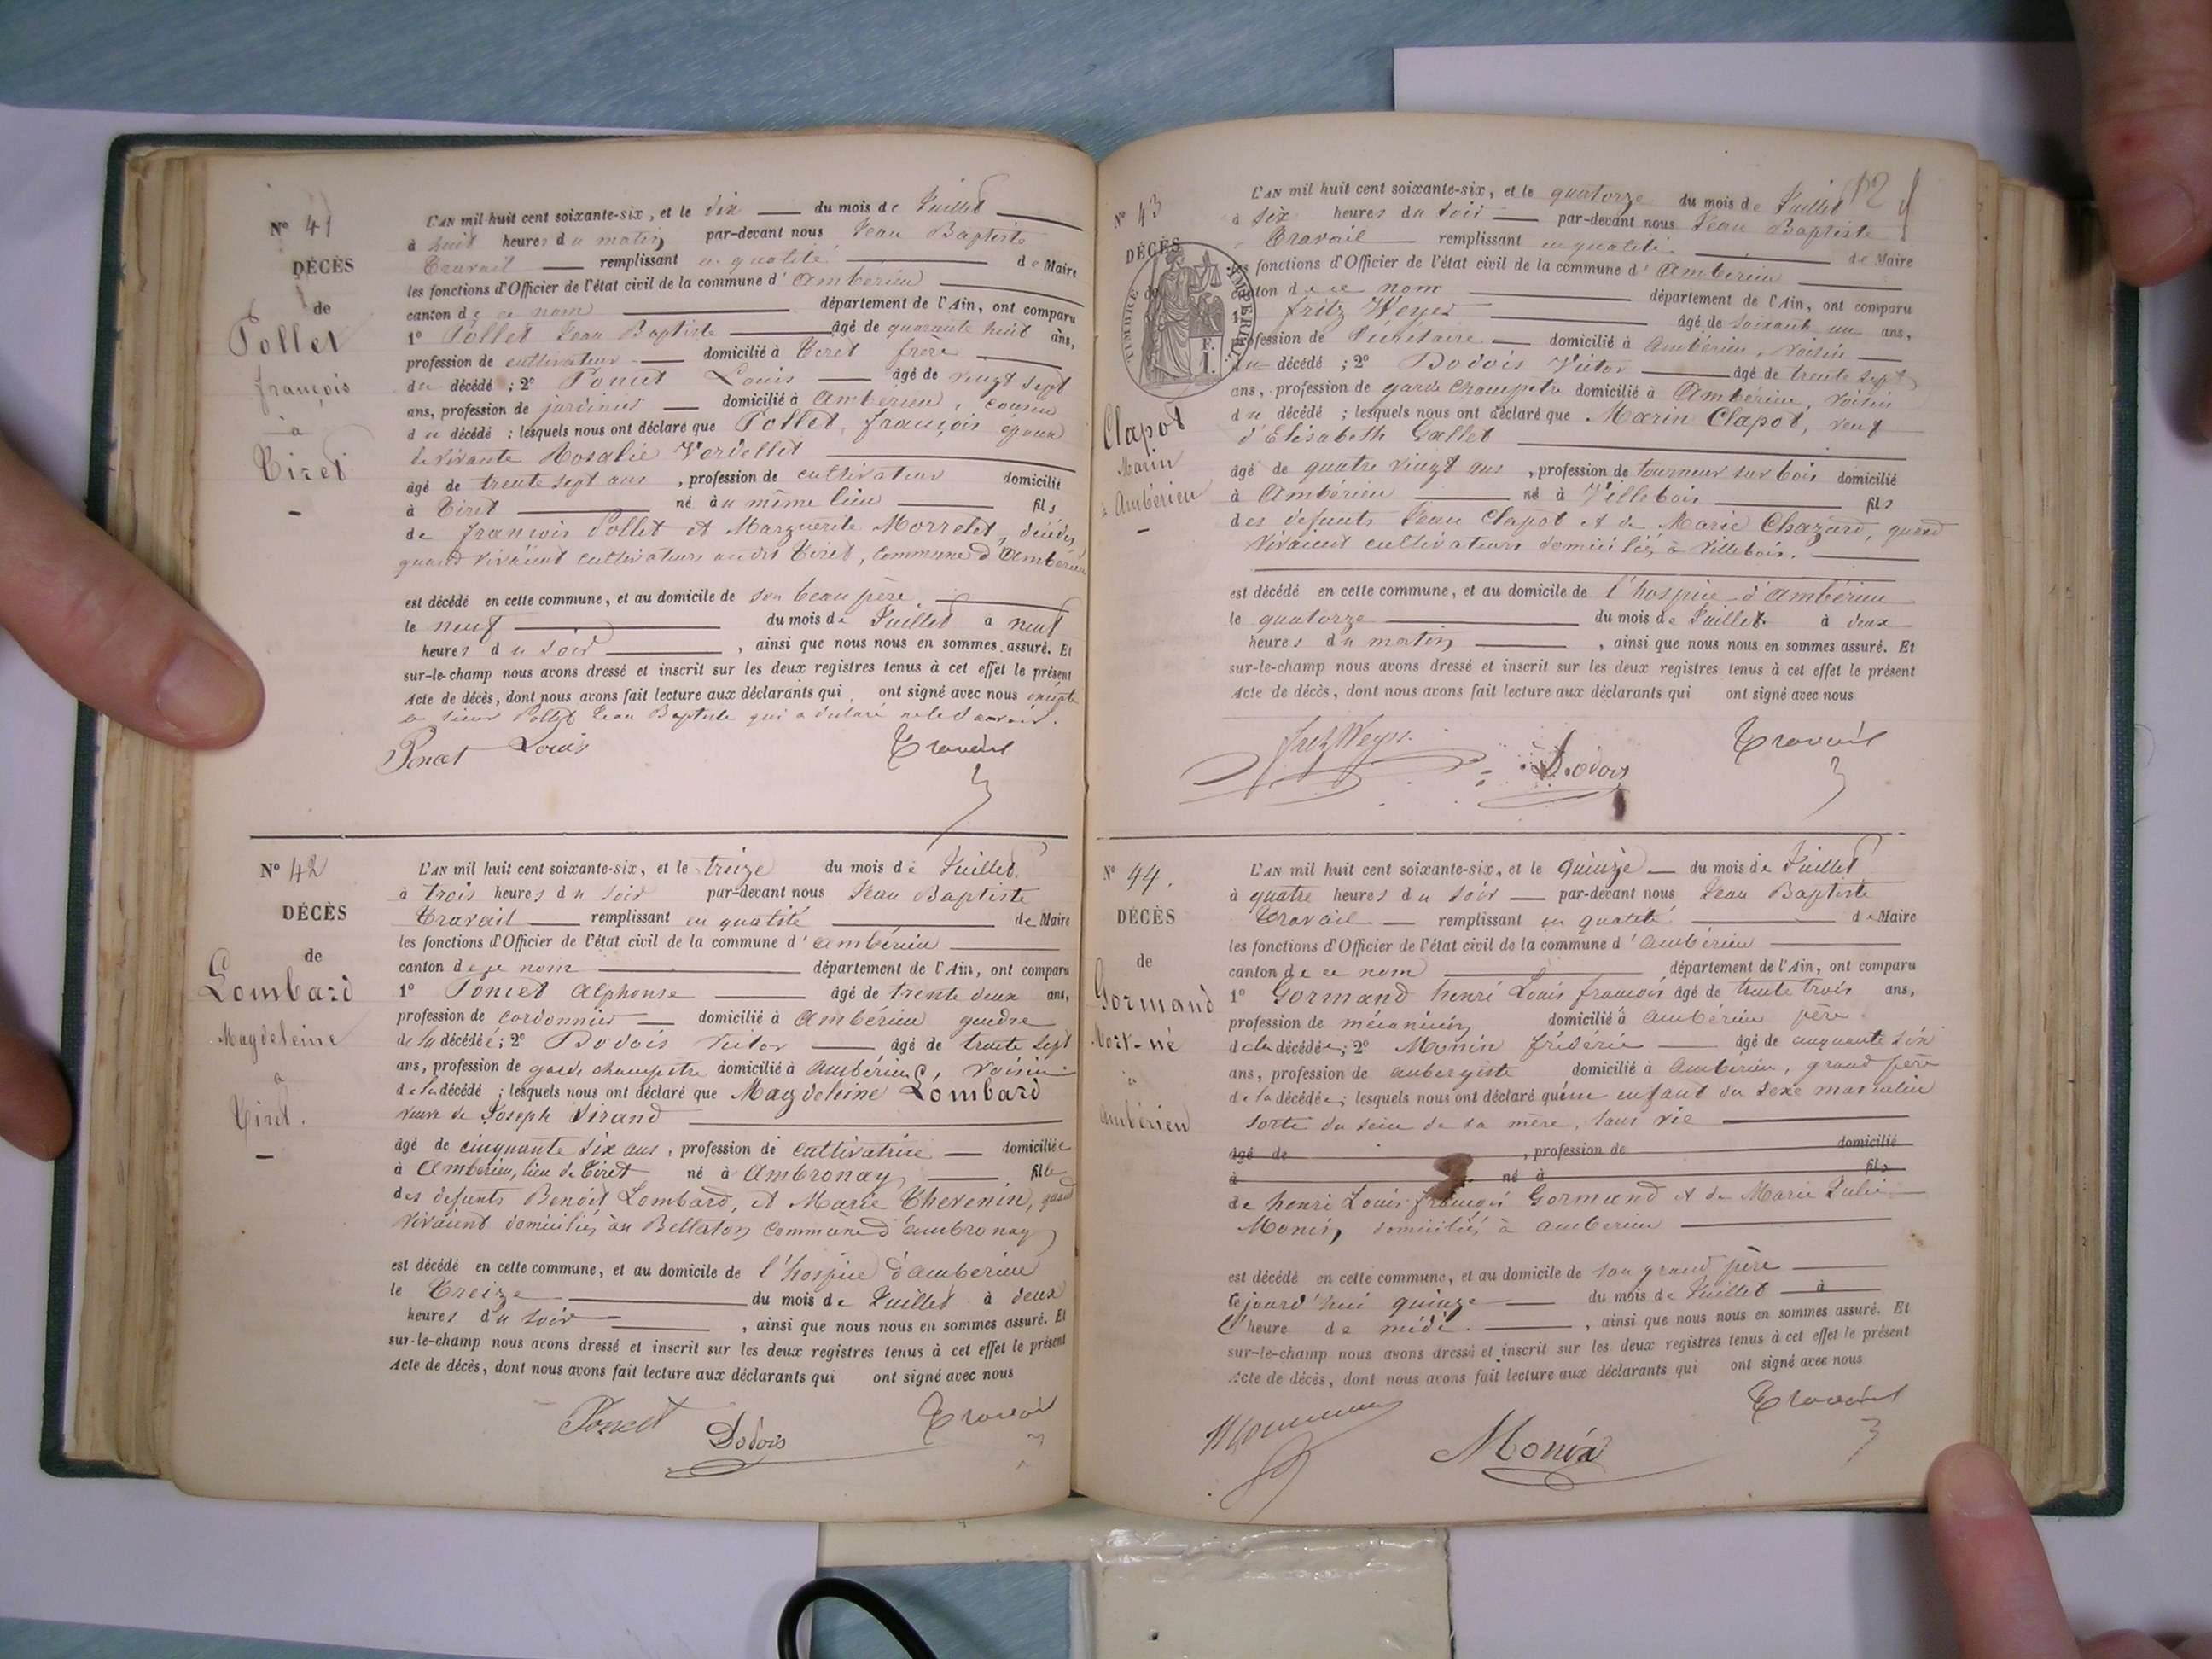 N° 41
DÉCÈS
de
Pollet
françois
à
Tiret
L'AN mil huit cent soixante-six, et le dix du mois de Juillet
à huit heures du matin par-devant nous Jean Baptiste
Travail remplissant en qualité de Maire
les fonctions d'Officier de l'état civil de la commune d'Ambérieu
canton de ce nom département de l'Ain, ont comparu
1° Pollet Jean Baptiste âgé de quarante huit ans,
profession de cultivateur domicilié à Tiret frère
du décédé ; 2° Poncet Louis âgé de vingt sept
ans, profession de jardinier domicilié à Ambérieu, cousin
du décédé ; lesquels nous ont déclaré que Pollet, françois époux
de vivante Rosalie Vordellet
âgé de trente sept ans , profession de cultivateur domicilié
à Tiret né au même lieu fils
de françois Pollet et Marguerite Morrelet, décédés
quand vivaient cultivateurs au dit Tiret, commune d'Ambérieu
est décédé en cette commune, et au domicile de son beau père
le neuf du mois de Juillet à neuf
heures du soir , ainsi que nous nous en sommes assuré. Et
sur-le-champ nous avons dressé et inscrit sur les deux registres tenus à cet effet le présent
Acte de décès, dont nous avons fait lecture aux déclarants qui ont signé avec nous excepté
le sieur Pollet Jean Baptiste qui a déclaré ne le savoir.
Poncet Louis Travail
N° 42
DÉCÈS
de
Lombard
Magdeleine
à
Tiret.
L'AN mil huit cent soixante-six, et le treize du mois de Juillet
à trois heures du soir par-devant nous Jean Baptiste
Travail remplissant en qualité de Maire
les fonctions d'Officier de l'état civil de la commune d'ambérieu
canton de ce nom département de l'Ain, ont comparu
1° Poncet Alphonse âgé de trente deux ans,
profession de cordonnier domicilié à Ambérieu gendre
de la décédée ; 2° Dodois Victor âgé de trente sept
ans, profession de garde champêtre domicilié à ambérieu, voisin
de la décédé ; lesquels nous ont déclaré que Magdeleine Lombard
veuve de Joseph Sirand
âgé de cinquante six ans , profession de cultivatrice domiciliée
à Ambérieu, lieu de Tiret né à Ambronay fille
des défunts Benoit Lombard, et Marie Thevenin, quand
vivaient domiciliés au Bellaton commune d'ambronay
est décédé en cette commune, et au domicile de l'hospice d'ambérieu
le Treize du mois de Juillet à deux
heures du soir , ainsi que nous nous en sommes assuré. Et
sur-le-champ nous avons dressé et inscrit sur les deux registres tenus à cet effet le présent
Acte de décès, dont nous avons fait lecture aux déclarants qui ont signé avec nous
Poncet Dodois Travail
N° 43
DÉCÈS
de
TIMBRE IMPERIAL
F.
1.
Clapot
Marin
à Ambérieu
L'AN mil huit cent soixante-six, et le quatorze du mois de Juillet
à six heures du soir par-devant nous Jean Baptiste
Travail remplissant en qualité de Maire
les fonctions d'Officier de l'état civil de la commune d'Ambérieu
canton de ce nom département de l'Ain, ont comparu
1° fritz Weyer âgé de soixante un ans,
profession de domicilié à ambérieu, voisin
du décédé ; 2° Dodois Victor âgé de trente sept
ans, profession de garde champêtre domicilié à Ambérieu, voisin
du décédé ; lesquels nous ont déclaré que Marin Clapot, veuf
d'Elisabeth Gallet
âgé de quatre vingt ans , profession de tourneur sur bois domicilié
à Ambérieu né à Villebois fils
des défunts Jean Clapot et de Marie Chazard, quand
vivaient cultivateurs domiciliés à Villebois.
est décédé en cette commune, et au domicile de l'hospice d'ambérieu
le quatorze du mois de Juillet à deux
heures du matin , ainsi que nous nous en sommes assuré. Et
sur-le-champ nous avons dressé et inscrit sur les deux registres tenus à cet effet le présent
Acte de décès, dont nous avons fait lecture aux déclarants qui ont signé avec nous
fritz Weyer Dodois Travail
N° 44.
DÉCÈS
de
Gormand
Mort-né
à
ambérieu
L'AN mil huit cent soixante-six, et le quinze du mois de Juillet
à quatre heures du soir par-devant nous Jean Baptiste
Travail remplissant en qualité de Maire
les fonctions d'Officier de l'état civil de la commune d'ambérieu
canton de ce nom département de l'Ain, ont comparu
1° Gormand henri Louis françois âgé de trente trois ans,
profession de mécanicien domicilié à ambérieu père
de la décédée ; 2° Monin frédéric âgé de cinquante six
ans, profession de aubergiste domicilié à ambérieu, grand père
de la décédée ; lesquels nous ont déclaré qu'une enfant du sexe masculin
sorti du sein de sa mère, sans vie
âgé de , profession de domicilié
à né à fils
de henri Louis françois Gormand et de Marie Julie
Monin, domiciliés à ambérieu
est décédé en cette commune, et au domicile de son grand père
Cejourd'hui quinze du mois de Juillet à
l'heure de midi , ainsi que nous nous en sommes assuré. Et
sur-le-champ nous avons dressé et inscrit sur les deux registres tenus à cet effet le présent
Acte de décès, dont nous avons fait lecture aux déclarants qui ont signé avec nous
Monin Travail